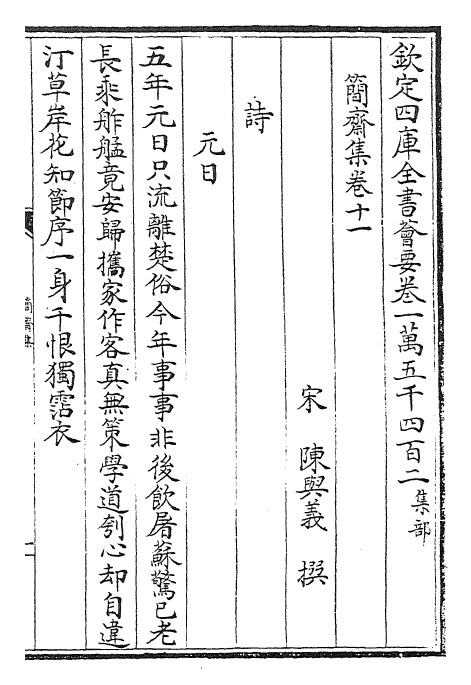 欽定四庫全書薈要卷一萬五千四百二 集部
簡齋集卷十一
宋 陳與義 撰
詩
元日
五年元日只流離楚俗今年事事非後飲屠蘇驚已老
長乘舴艋竟安歸攜家作客真無策學道刳心却自違
汀草岸花知節序一身千恨獨霑衣
簡齋集
一